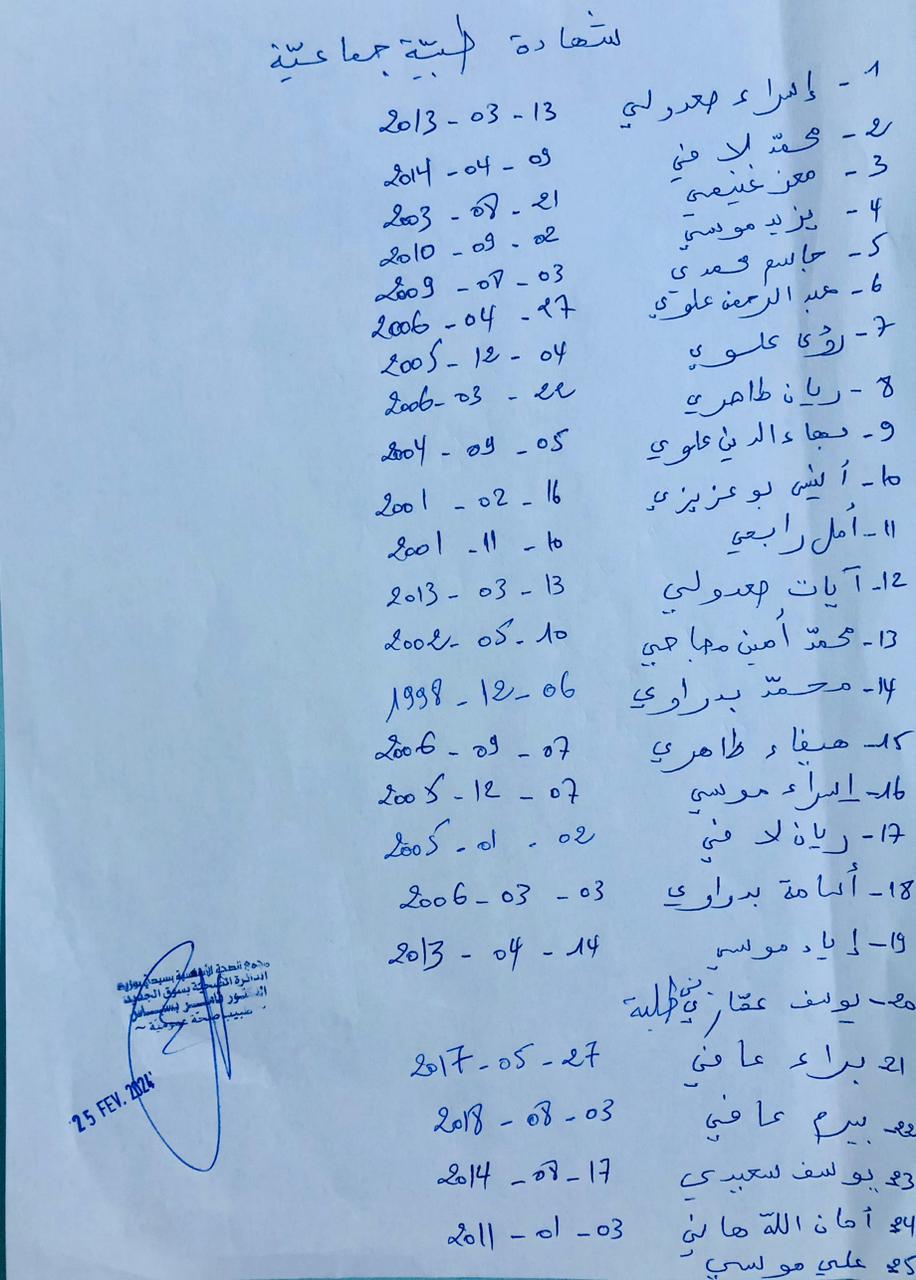 شهادة طبيّة جماعيّة
1- إسراء صعدولي 13 - 03 - 2013
2- محمّد لا في 09 - 04 - 2014
3- معز غنيمي 21 - 08 - 2003
4- يزيد موسي 02 - 09 - 2010
5- جاسم محمدي 03 - 08 - 2009
6- عبد الرحمن علوي 27 - 04 - 2006
7- رؤى علوي 04 - 12 - 2005
8- ريان طاهري 22 - 03 - 2006
9- بهاء الدين علوي 05 - 09 - 2004
10- أنيس بوعزيزي 16 - 02 - 2001
11- أمل رابعي 10 - 11 - 2001
12- آيات صعدولي 13 - 03 - 2013
13- محمّد أمين 10 - 05 - 2002
14- محمّد بدراوي 06 - 12 - 1998
15- هيفاء طاهري 07 - 09 - 2006
16- إسراء موسي 07 - 12 - 2005
17- ريان لا في 02 - 01 - 2005
18- أسامة بدراوي 03 - 03 - 2006
19- إياد موسي 14 - 04 - 2013
20- يوسف
21 براء عافي 27 - 05 - 2017
22- بيرم عافي 03 - 08 - 2018
23 يوسف سعيدي 17 - 08 - 2014
24 أمان اللّه هاني 03 - 01 - 2011
25 علي موسي
مجمع الصحة الأساسية بسيدي بوزيد
الدائرة الصحية بسوق الجديد
طبيب صحة عمومية
25 FEV. 2024